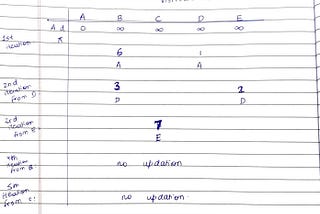 A B C D E
A d 0 ∞ ∞ ∞ ∞
π
1st iteration 6 1
A A
2nd iteration from D: 3 2
D D
3rd iteration from E: 7
E
4th iteration from B: no updation
5th iteration from C: no updation